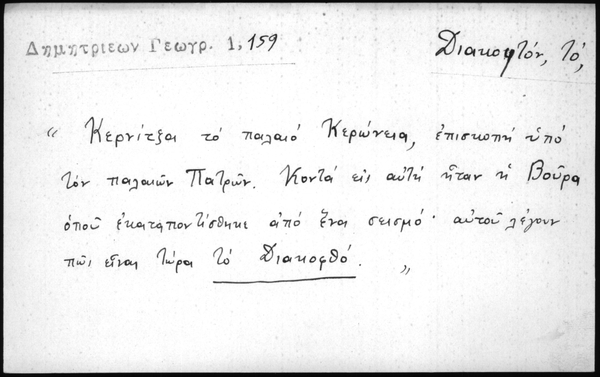 Δημητριεων Γεωγρ. 1, 159
Διακοφτόν, τό,
“ Κερνίτζαι τό παλαιό Κερώνεια, ἐπισκοπή ὑπό
τόν παλαιῶν Πατρῶν. Κοντά εἰς αὐτή ἦταν ἡ Βοῦρα
ὁποῦ ἐκαταποντίσθηκε ἀπό ἕναι σεισμό· αὐτοῦ λέγουν
πῶς εἶναι τώρα τό Διακοφθό. „